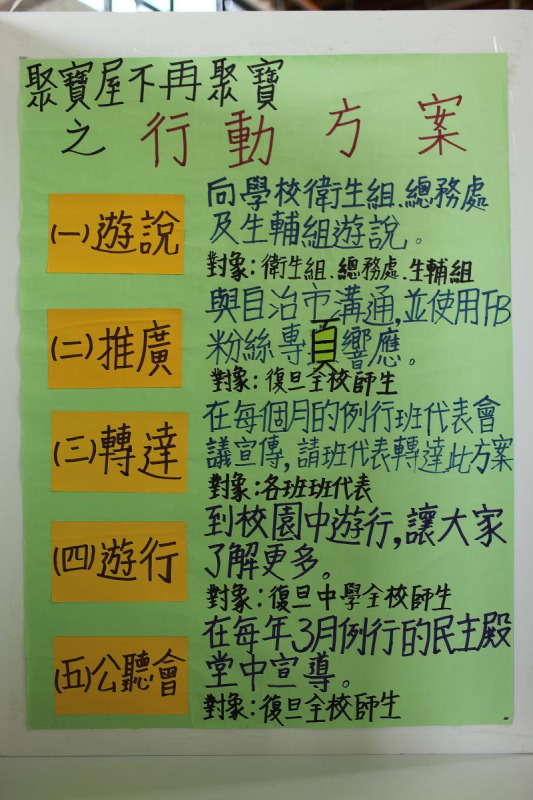 聚寶屋不再聚寶
之行動方案
(一)遊說
向學校衛生組、總務處
及生輔組遊說。
對象:衛生組、總務處、生輔組
(二)推廣
與自治市溝通,並使用FB
粉絲專頁響應。
對象:復旦全校師生
(三)轉達
在每個月的例行班代表會
議宣傳,請班代表轉達此方案
對象:各班班代表
(四)遊行
到校園中遊行,讓大家
了解更多。
對象:復旦中學全校師生
(五)公聽會
在每年3月例行的民主殿
堂中宣導。
對象:復旦全校師生